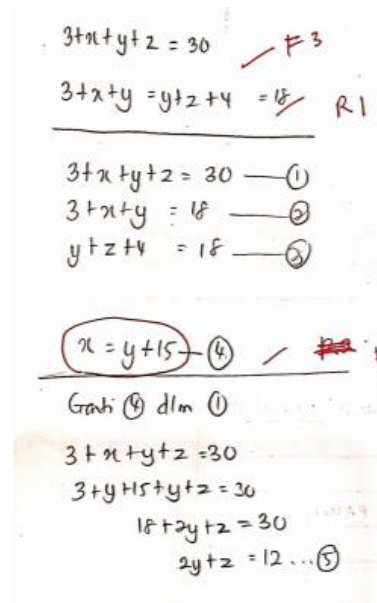 3+x+y+z = 30
F3
3+x+y = y+z+4 = 18
R1
3+x+y+z = 30 — ①
3+x+y = 18 — ②
y+z+4 = 18 — ③
x = y+15 — ④
Ganti ④ dlm ①
3+x+y+z =30
3+y+15+y+z = 30
18+2y+z = 30
2y+z = 12 ... ⑤